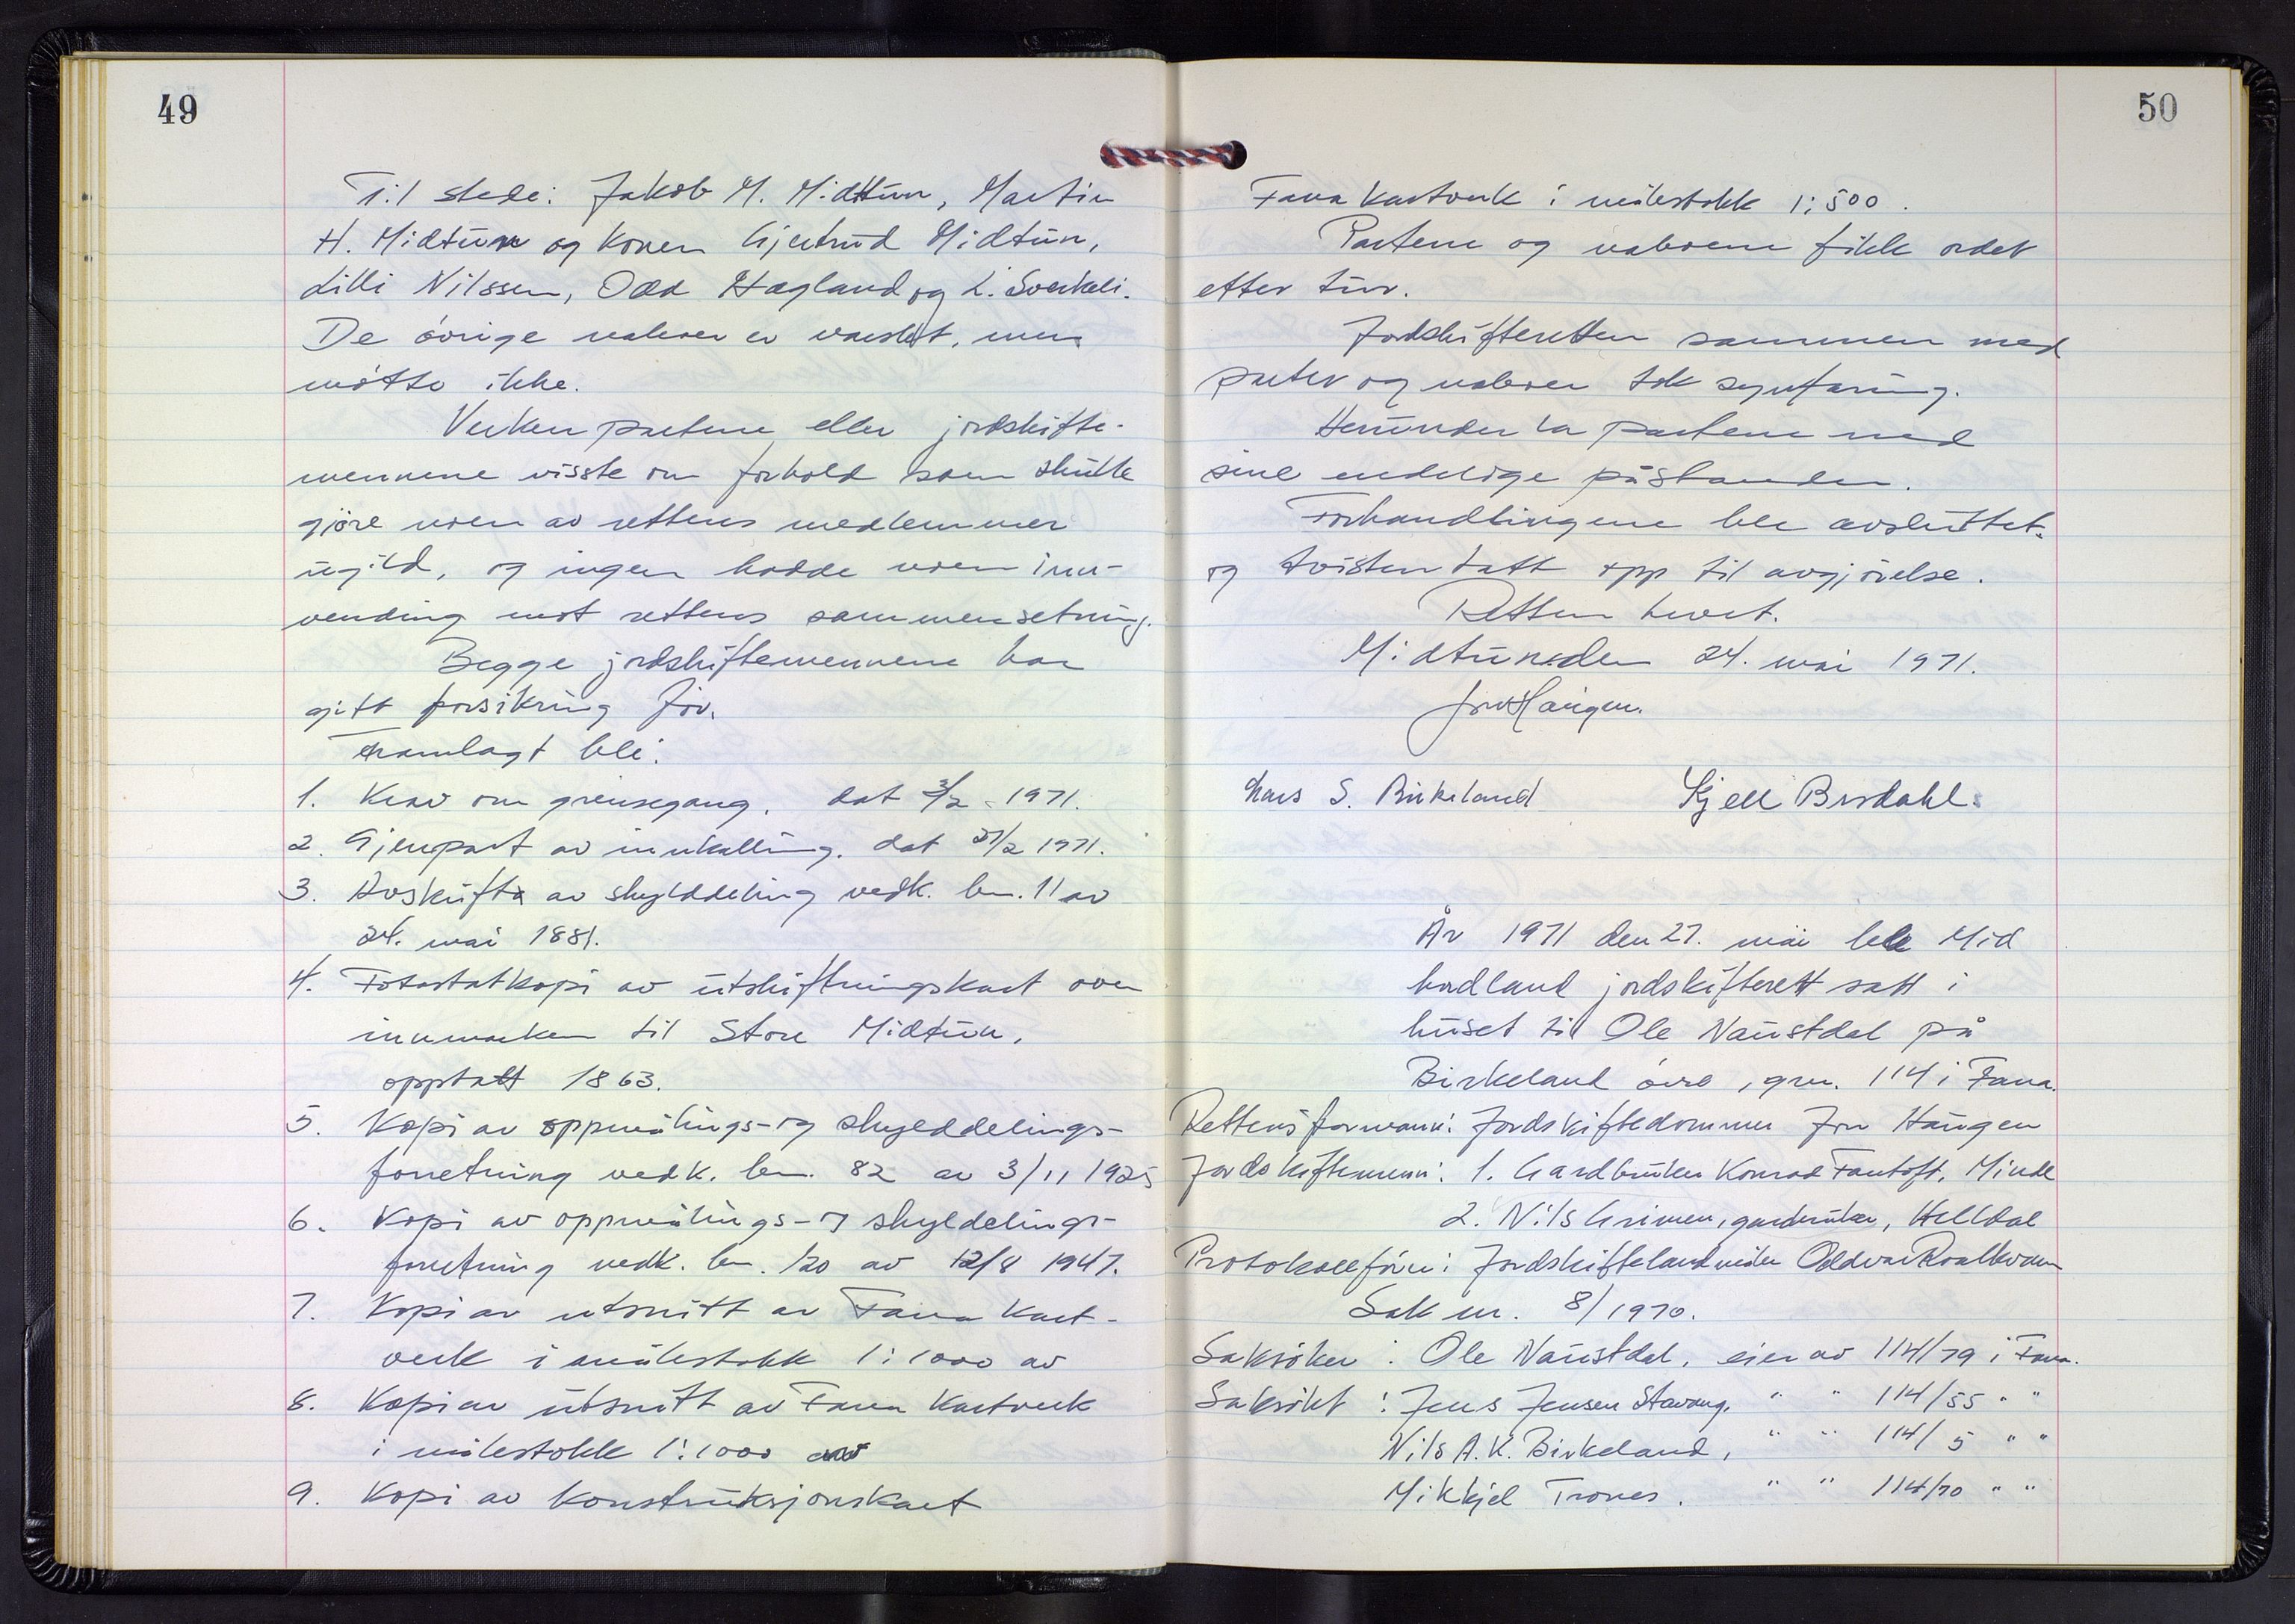 49
Til stede: Jakob M. Midttun, Martin
H. Midtun og konen Gjertrud Midtun,
Lilli Nilssen, Odd Hagland og L. Sverkeli.
De övrige naboer er varslet, men
mötte ikke.
Verken partene eller jordskifte-
mennene visste om forhold som skulle
gjöre noen av rettens medlemmer
ugild, og ingen hadde noen inn-
vending mot rettens sammensetning.
Begge jordskiftemennene har
gitt forsikring för.
Framlagt ble:
1. Krav om grensegang, dat 3/2 - 1971.
2. Gjenpart av innkalling. dat 27/2 1971.
3. Avskift av skylddeling vedk. bn. 11 av
24. mai 1881.
4. Fotostatkopi av utskiftningskart over
innmarken til Store Midtun,
opptatt 1863.
5. Kopi av oppmålings- og skylddelings-
forretning vedk. bn. 82 av 3/11 1925
6. Kopi av oppmålings- og skyldelings-
forretning vedk. bn. 120 av 12/8 1947.
7. Kopi av utsnitt av Fana kart-
verk i målestokk 1:1000 av
8. Kopi av utsnitt av Fana Kartverk
i målestokk 1:1000 av
9. Kopi av konstruksjonskart
50
Fana kartverk i målestokk 1:500.
Partene og naboene fikk ordet
etter tur.
Jordskifteretten sammen med
parter og naboer tok synfaring.
Herunder la partene ned
sine endelige påstander.
Forhandlingene ble avsluttet.
og tvisten tatt opp til avgjörelse.
Retten hevet.
Midtun den 24. mai 1971.
Jon Haugen.
Lars S. Birkeland Kjell Birdahl.
År 1971 den 27. mai ble Mid
hordland jordskifterett satt i
huset til Ole Naustdal på
Birkeland övre, gnr. 114 i Fana.
Rettens formann: Jordskiftedommer Jon Haugen
Jordskiftemenn: 1. Gardbruker Konrad Fantoft, Minde
2. Nils Grimen, gardbruker, Helldal
Protokollförer: Jordskiftelandmåler Oddvar Roalkvam
Sak nr. 8/1970.
Saksöker: Ole Naustdal, eier av 114/79 i Fana.
Saksökt: Jens Jensen Stavang, " " 114/55 " "
Nils A.K. Birkeland, " " 114/5 " "
Mikkjel Trones. " " 114/70 " "